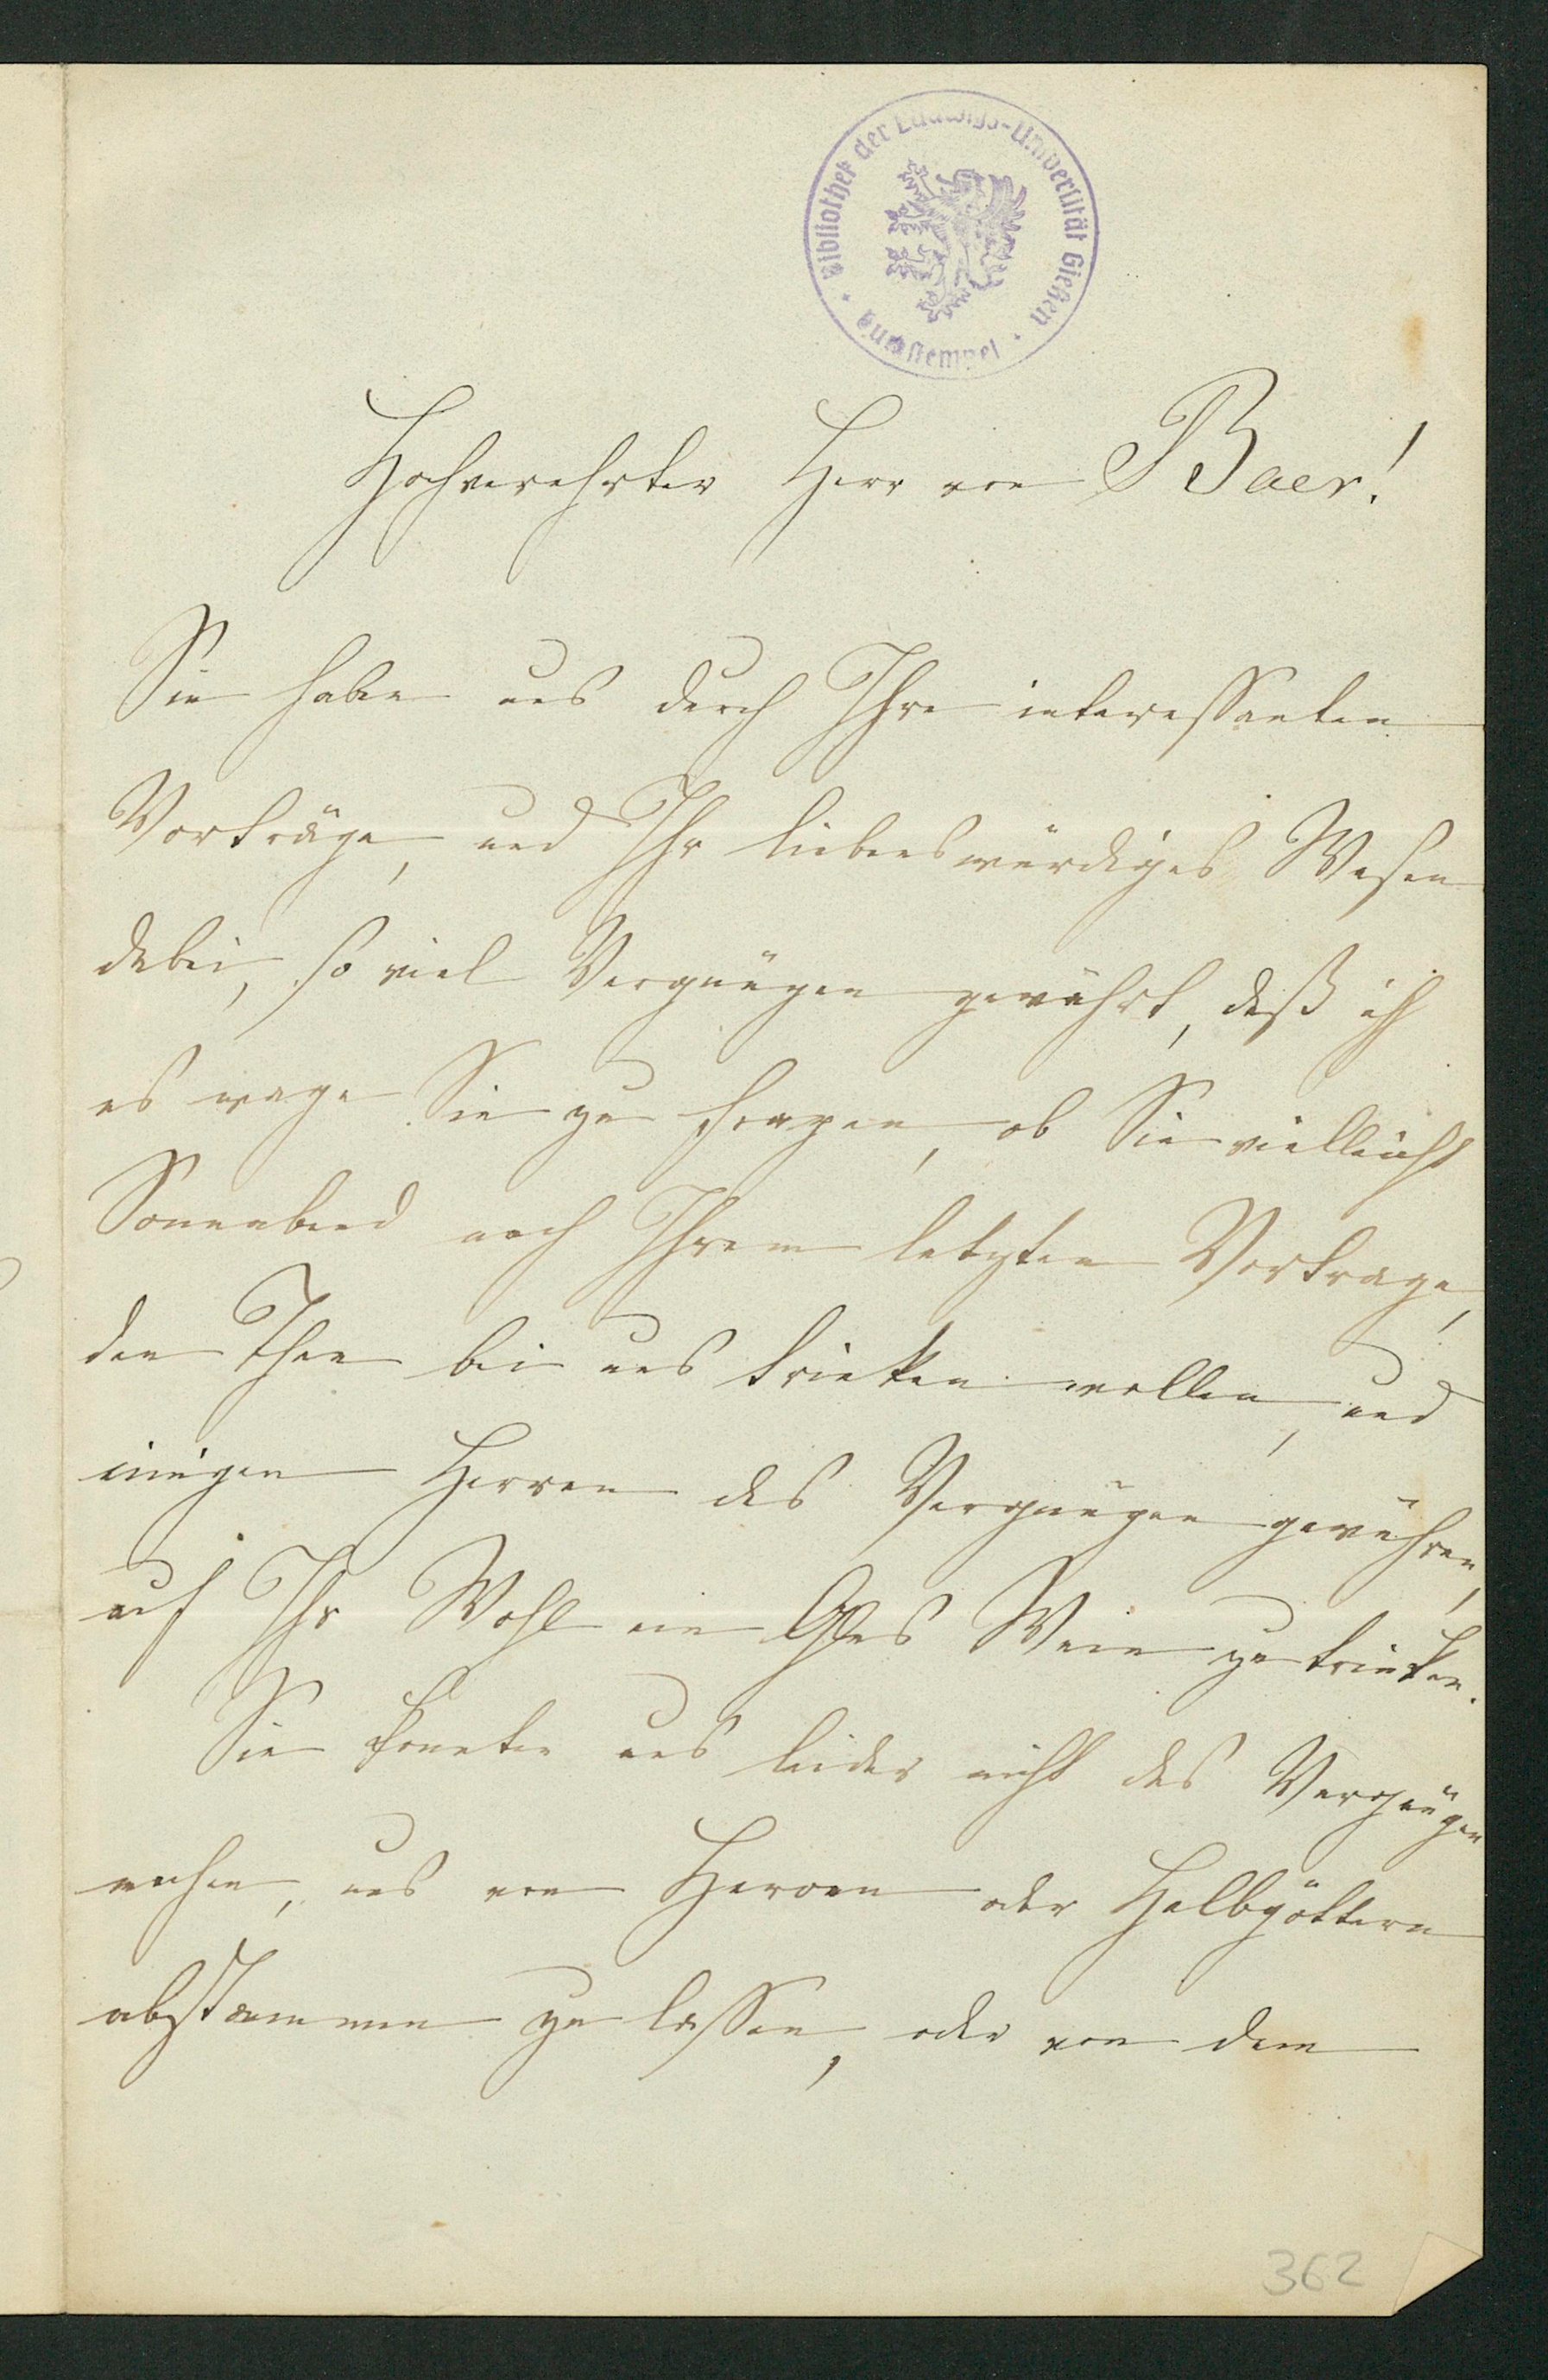 Bibliothek der Ludwigs-Universität Gießen
Hochverehrter Herr von Baer!
Sie haben uns durch Ihre interessanten
Vorträge, und Ihr liebenswürdiges Wesen
dabei, so viel Vergnügen gewährt, daß ich
es wage Sie zu fragen, ob Sie vielleicht
Sonnabend nach Ihrem letzten Vortrage,
den Thee bei uns trinken wollen, und
einigen Herren das Vergnügen gewähren,
auf Ihr Wohl ein Glas Wein zu trinken.
Sie konnten uns leider nicht das Vergnügen
machen, uns von Heroen oder Halbgöttern
abstammen zu lassen, oder von dem
362